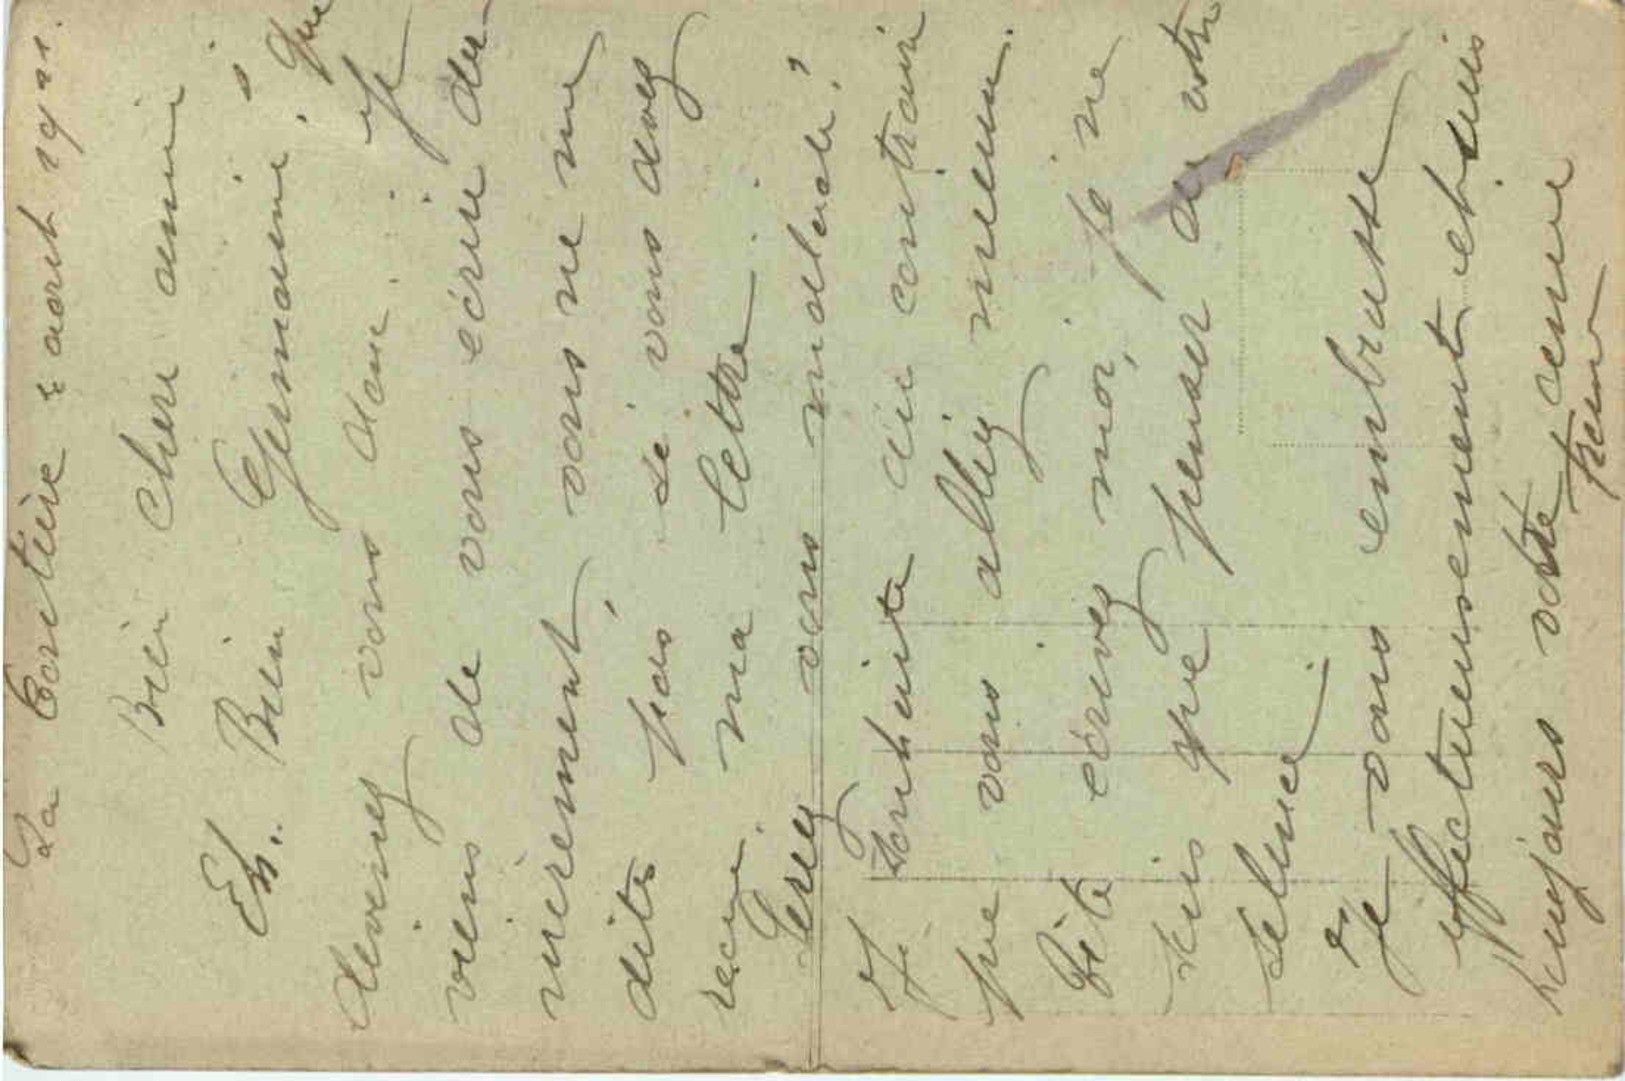 La Coritière 2 aout 1921.
Bien chère amie
Eh. Bien Germaine, que
devenez vous donc. Je
viens de vous écrire der
nièrement, vous ne me
dite pas, si vous avez
recue ma lettre.
Serez vous malade?
Je souhaite au contraire
que vous allez mieux.
Vite écrivez moi, je ne
sais que penser de votre
silence
Je vous embrasse
affectueusement et suis
toujours votre amie